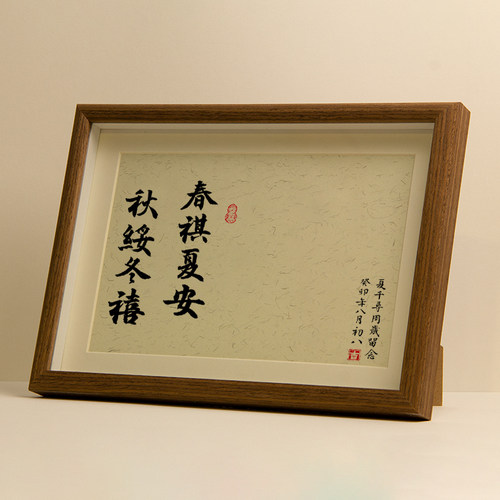 春祺夏安
秋绥冬禧
夏千寻周岁留念
癸卯年八月初八
吉